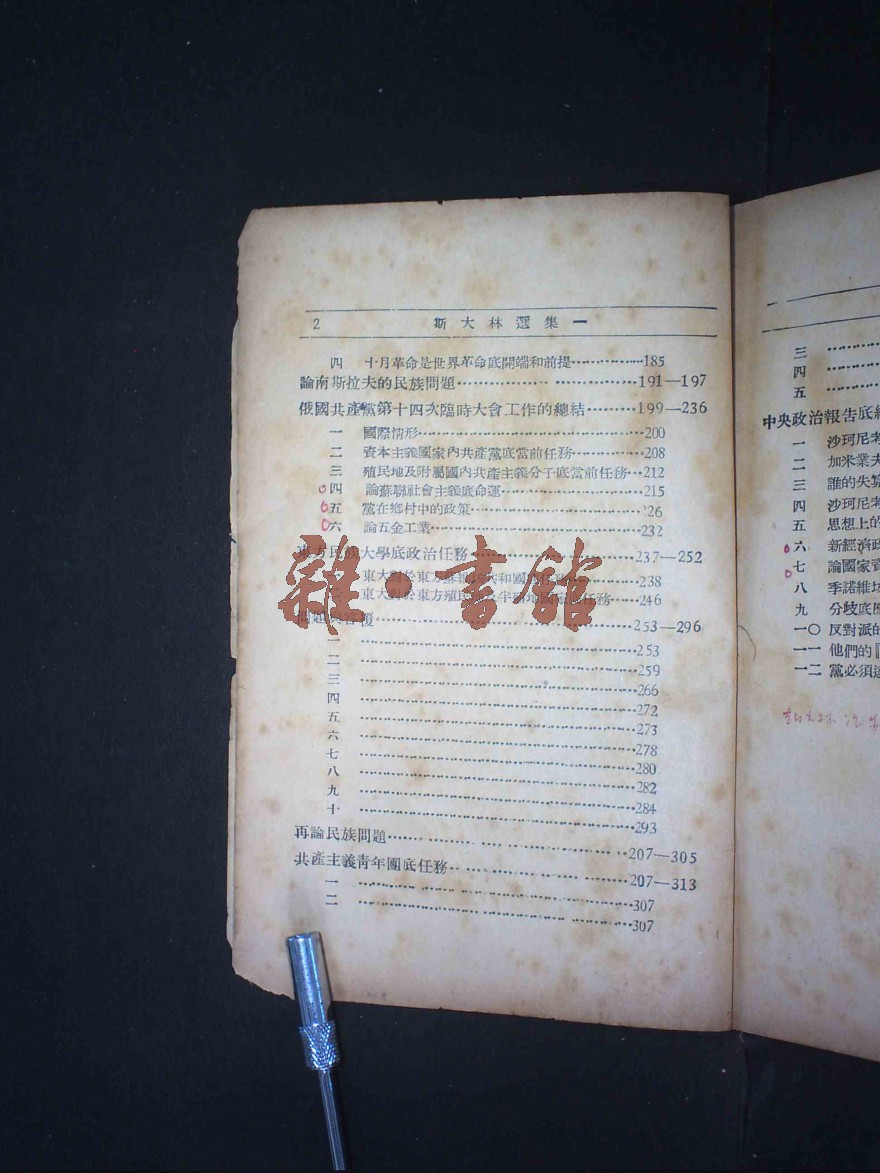 2 斯大林選集一
四 十月革命是世界革命底開端和前提……185
論南斯拉夫的民族問題……191—197
俄國共產黨第十四次臨時大會工作的總結……199—236
一 國際情形……200
二 資本主義國家內共產黨底當前任務……208
三 殖民地及附屬國內共產主義分子底當前任務…212
四 論蘇聯社會主義底命運……215
五 黨在鄉村中的政策……26
六 論五金工業……232
東方民族大學底政治任務……237—252
東大對於東方蘇 共和國 任務……238
東大對於東方殖民 任務……246
問題與答覆……253—296
一……253
二……259
三……266
四……272
五……273
六……278
七……280
八……282
九……284
十……293
再論民族問題……207—305
共產主義青年團底任務……207—313
一……307
二……307
雜·書館
三……
四……
五……
中央政治報告底
一 沙珂尼
二 加米業夫
三 誰的失算
四 沙珂尼
五 思想上的
六 新經濟政
七 論國家
八 季諾維
九 分歧底
一〇 反對派的
一一 他們的『
一二 黨必須